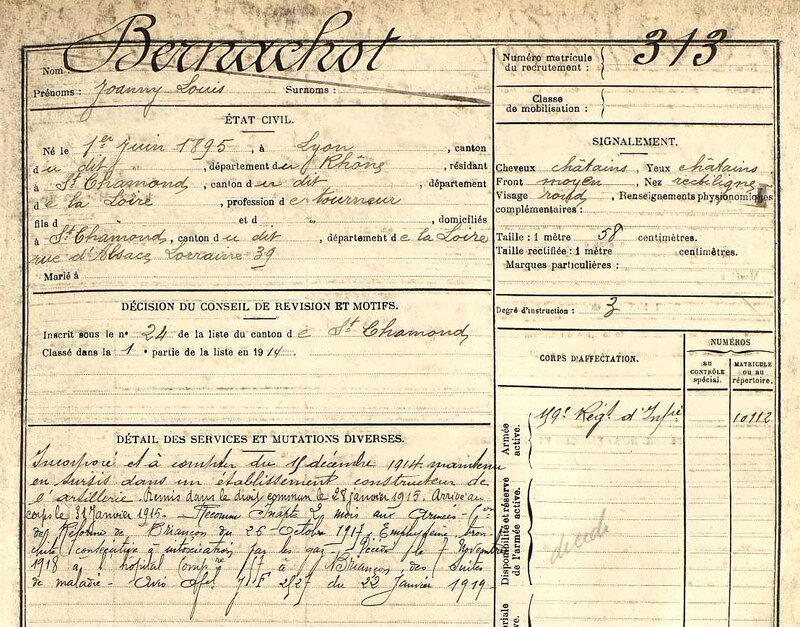 Nom : Bernachot
Prénoms : Joanny Louis Surnoms :
ÉTAT CIVIL.
Né le 1er juin 1895, à Lyon, canton
du dit, département du Rhône, résidant
à St Chamond, canton du dit, département
de la Loire, profession de tourneur
fils d " et d " domiciliés
à St Chamond, canton du dit, département de la Loire
rue d'Alsace Lorraine 39
Marié à
DÉCISION DU CONSEIL DE REVISION ET MOTIFS.
Inscrit sous le n° 24 de la liste du canton de St Chamond
Classé dans la 1e partie de la liste en 1914.
DÉTAIL DES SERVICES ET MUTATIONS DIVERSES.
Incorporé et à compter du décembre 1914 maintenu
en sursis dans un établissement constructeur de
l'artillerie. Remis dans le droit commun le 28 janvier 1915. Arrivé au
corps le 31 Janvier 1915. Reconnu Inapte mois aux Armées
de Réforme de Briançon du 26 Octobre 1917, Emphysème bron
chite consécutive à intoxication par les gaz. Décédé le 7 Novembre
1918 à l'hôpital Compre à Briançon des suites
de maladie. Avis 2127 du 22 Janvier 1919.
Numéro matricule
du recrutement : 313
Classe
de mobilisation :
SIGNALEMENT.
Cheveux châtains, Yeux châtains.
Front moyen, Nez rectiligne
Visage rond, Renseignements physionomiques
complémentaires :
Taille : 1 mètre 58 centimètres.
Taille rectifiée : 1 mètre centimètres.
Marques particulières :
Degré d'instruction : 3
CORPS D'AFFECTATION.
NUMÉROS
AU
CONTRÔLE
spécial.
MATRICULE
OU AU
répertoire.
Armée
active.
159e Régt d'Infie
10112
Disponibilité et réserve
de l'armée active.
décédé